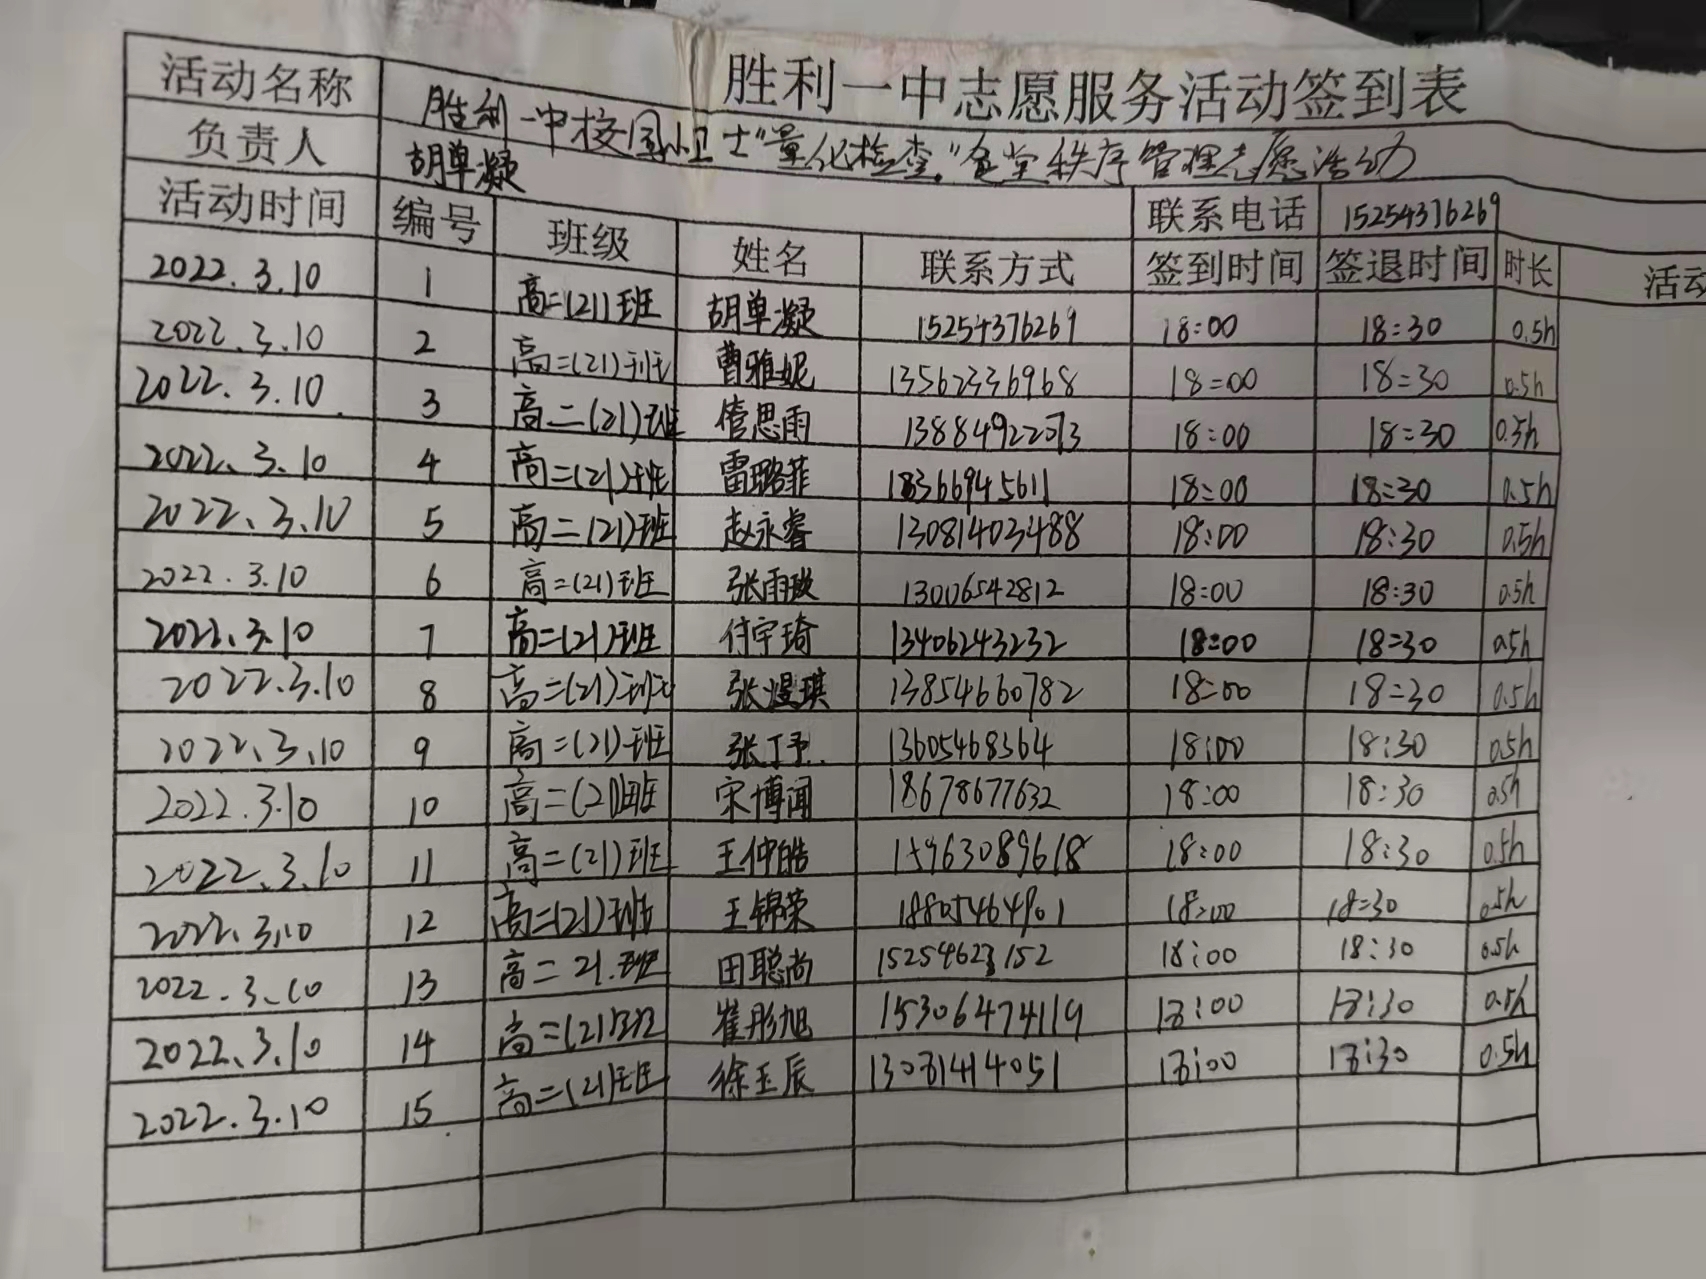 胜利一中志愿服务活动签到表
活动名称 胜利一中校园小卫士"量化检查"食堂秩序管理志愿活动
负责人 胡单凝 联系电话 15254376269
活动时间 编号 班级 姓名 联系方式 签到时间 签退时间 时长 活动
2022.3.10 1 高二(21)班 胡单凝 15254376269 18:00 18:30 0.5h
2022.3.10 2 高二(21)班 曹雅妮 13562336968 18:00 18:30 0.5h
2022.3.10 3 高二(21)班 管思雨 13884922073 18:00 18:30 0.5h
2022.3.10 4 高二(21)班 雷璐菲 18366945611 18:00 18:30 0.5h
2022.3.10 5 高二(21)班 赵永睿 13081403488 18:00 18:30 0.5h
2022.3.10 6 高二(21)班 张雨 13006542812 18:00 18:30 0.5h
2022.3.10 7 高二(21)班 付宇琦 13406243232 18:00 18:30 0.5h
2022.3.10 8 高二(21)班 张煜琪 13854660782 18:00 18:30 0.5h
2022.3.10 9 高二(21)班 张丁予 13605468364 18:00 18:30 0.5h
2022.3.10 10 高二(21)班 宋博闻 18678677632 18:00 18:30 0.5h
2022.3.10 11 高二(21)班 王仲皓 15963089618 18:00 18:30 0.5h
2022.3.10 12 高二(21)班 王锦荣 18805464901 18:00 18:30 0.5h
2022.3.10 13 高二21.班 田聪尚 15254623152 18:00 18:30 0.5h
2022.3.10 14 高二(21)班 崔彤旭 15306474119 18:00 18:30 0.5h
2022.3.10 15 高二(21)班 徐玉辰 13081414051 18:00 18:30 0.5h